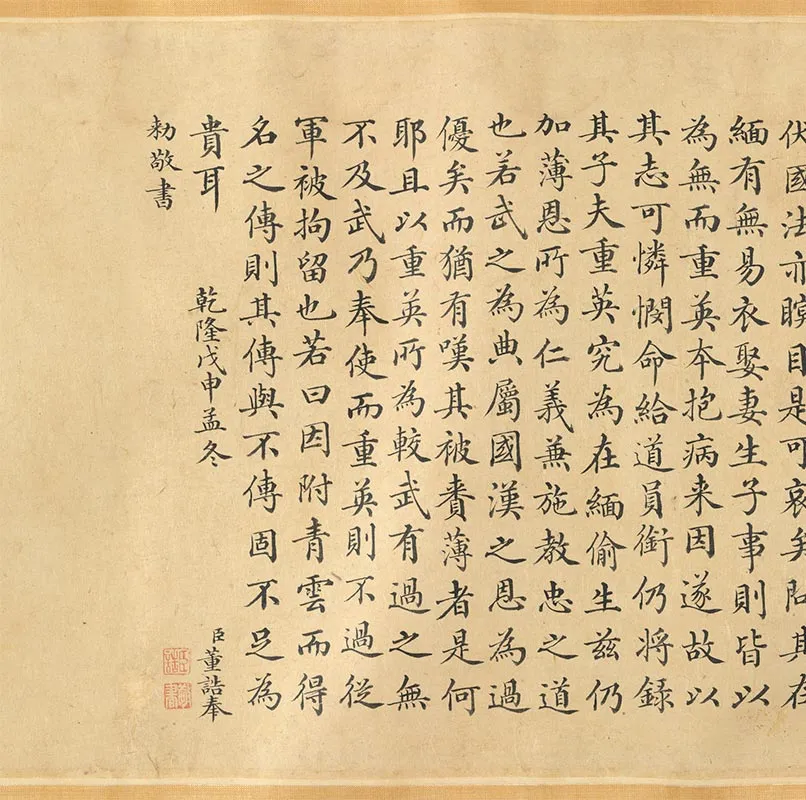 伏國法亦瞑目是可哀矣問其在
緬有無易衣娶妻生子事則皆以
為無而重英本抱病来因遂故以
其志可憐憫命給道員銜仍將録
其子夫重英究為在緬偷生兹仍
加薄恩所為仁義兼施教忠之道
也若武之為典屬國漢之恩為過
優矣而猶有嘆其被賚薄者是何
耶且以重英所為較武有過之無
不及武乃奉使而重英則不過從
軍被拘留也若曰因附青雲而得
名之傳則其傳與不傳固不足為
貴耳
乾隆戊申孟冬
臣董誥奉
勅敬書